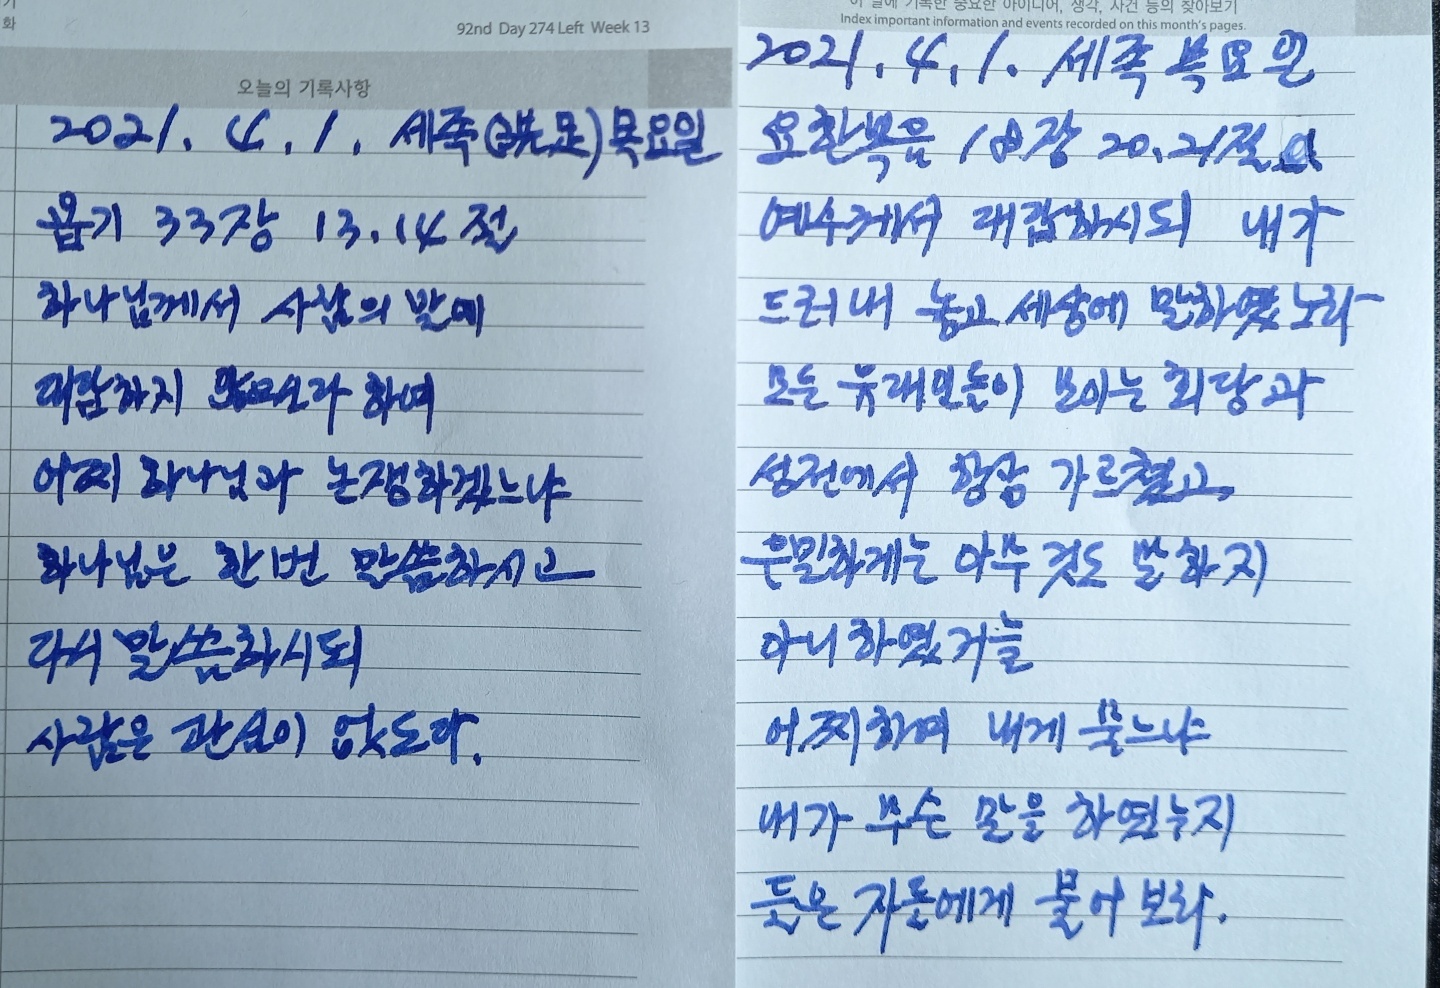 기
화
92nd Day 274 Left Week 13
오늘의 기록사항
2021. 4. 1. 세족(洗足)목요일
욥기 33장 13.14절
하나님께서 사람의 말에
대답하지 않으신다 하여
어찌 하나님과 논쟁하겠느냐
하나님은 한번 말씀하시고
다시 말씀하시되
사람은 관심이 없도다.
이 달에 기록한 중요한 아이디어, 생각, 사건 등의 찾아보기
Index important information and events recorded on this month's pages.
2021. 4. 1. 세족 목요일
요한복음 18장 20.21절
예수께서 대답하시되 내가
드러내 놓고 세상에 말하였노라
모든 유대인들이 모이는 회당과
성전에서 항상 가르쳤고
은밀하게는 아무 것도 말하지
아니하였거늘
어찌하여 내게 묻느냐
내가 무슨 말을 하였는지
들은 자들에게 물어 보라.